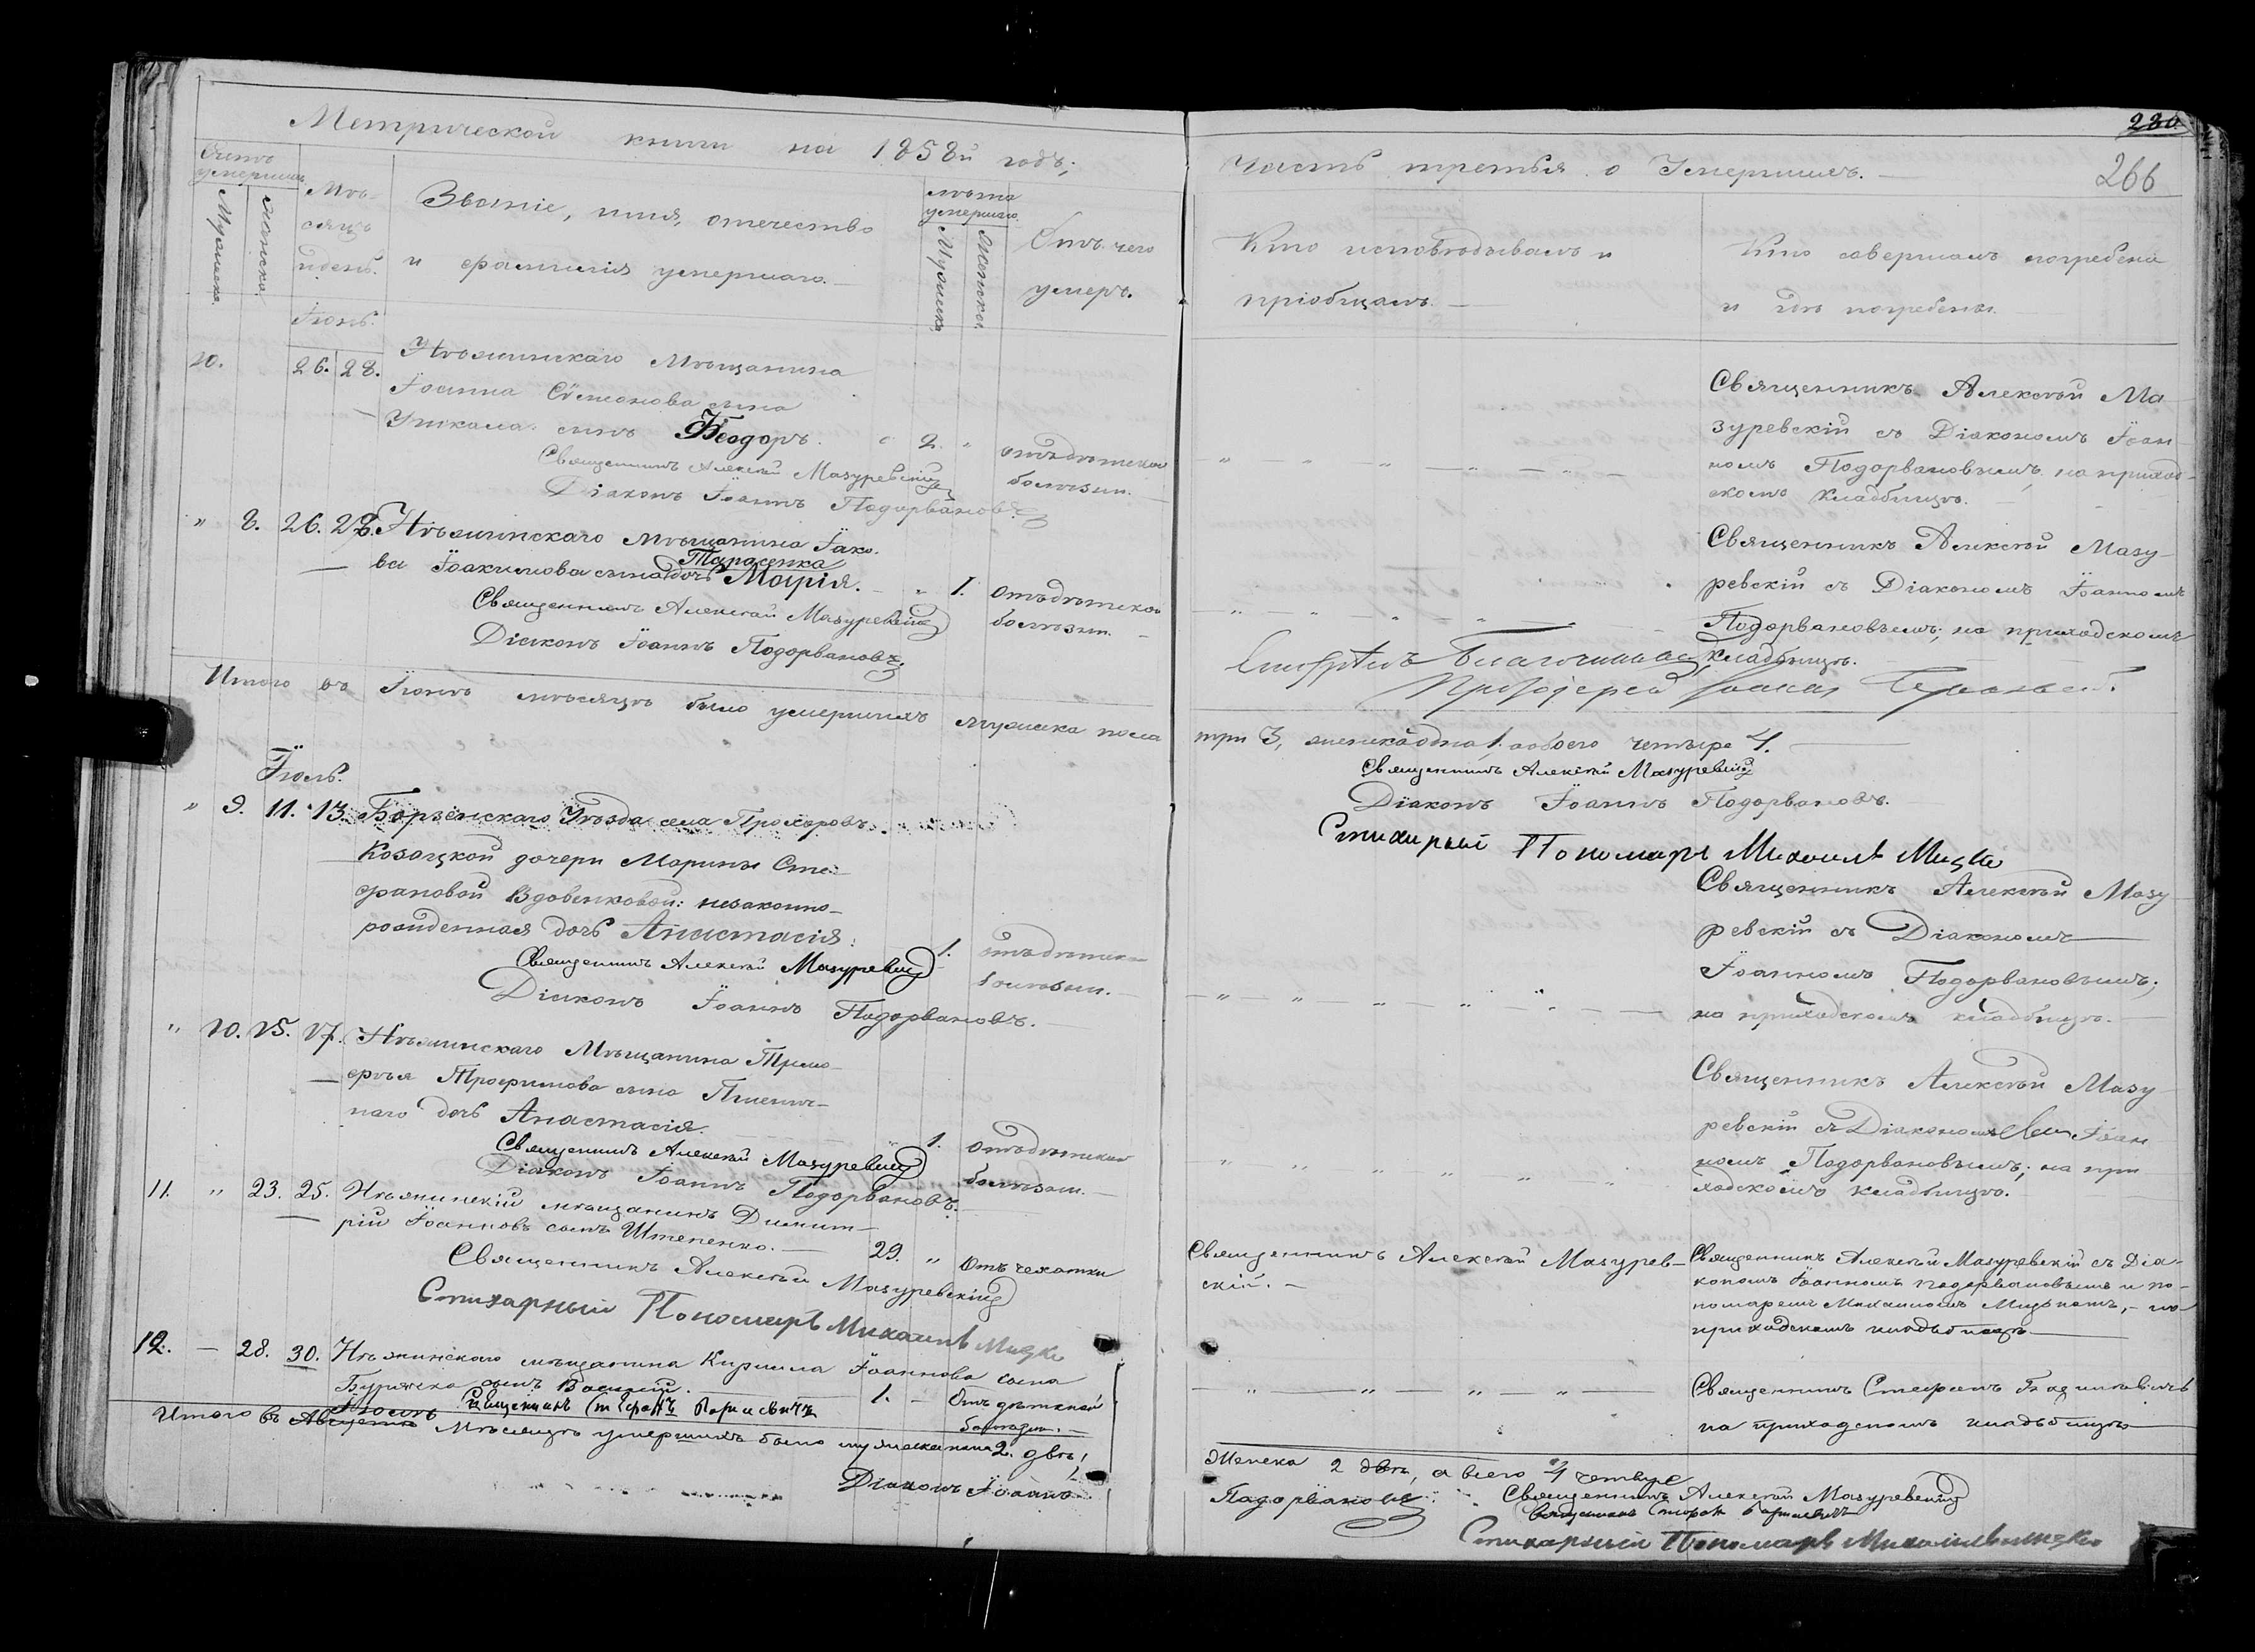 Метрической книги на 1858й годъ;
Счетъ умершихъ
Мужеска.
Женска.
Мѣсяцъ и день.
Званіе, имя, отечество
и фамилія умершаго.
лѣта умершаго.
Мужеска
Женска.
Отъ чего
умеръ.
Іюнь.
10. 26. 28. Нѣжинскаго Мѣщанина
Іоанна Сѷмонова сына
сынъ Ѳеодоръ. 2. " отъ дѣтской
Священникъ Алексѣй Мазуревскій
болѣзни.
Діаконъ Іоаннъ Подорвановъ
" 8. 26. 28. Нѣжинскаго мѣщанина Іако-
Тарасенка
ва Іоакимова сына дочь Марія. " 1. Отъ дѣтской
Священникъ Алексѣй Мазуревскій
болѣзни.
Діаконъ Іоаннъ Подорвановъ.
Итого въ Іюнѣ мѣсяцѣ было умершихъ мужска пола
Іюль.
" 9. 11. 13. Борзенскаго Уѣзда села Прохоровъ
Козацкой дочери Марины Сте-
фановой Вдовенковой: незаконно-
рожденная дочь Анастасія: 1. отъ дѣтской
Священникъ Алексѣй Мазуревскій
болѣзни.
Діаконъ Іоаннъ Подорвановъ.
" 10. 15. 17. Нѣжинскаго Мѣщанина Тимо-
фѣя Трофимова сына Пшенич-
наго дочь Анастасія. " 1. отъ дѣтской
Священникъ Алексѣй Мазуревскій
болѣзни.
Діаконъ Іоаннъ Подорвановъ.
11. " 23. 25. Нѣжинскій мѣщанинъ Димит-
рій Іоанновъ сынъ Штепенко. 29. " Отъ чехотки
Священникъ Алексѣй Мазуревскій
Стихарный Пономарь Михаилъ Мицко
12. — 28. 30. Нѣжинскаго мѣщанина Кирилла Іоаннова сына
сынъ Василій. 1. — Отъ дѣтской
болѣзни.
Священникъ Стефанъ
Іюлѣ
Итого въ Августѣ Мѣсяцѣ умершихъ было мужеска пола 2. двѣ,
Діаконъ Іоаннъ
280
266
Часть третья о Умершихъ.
Кто исповѣдывалъ и
пріобщалъ.
Кто совершалъ погребеніе
и гдѣ погребены.
Священникъ Алексѣй Ма-
зуревскій съ Діакономъ Іоан-
номъ Подорвановымъ, на приход-
скомъ кладбищѣ.
Священникъ Алексѣй Мазу-
ревскій съ Діакономъ Іоанномъ
Подорвановымъ; на приходскомъ
кладбищѣ.
Благочинный
Протоіерей
три 3, женска одна 1. а обоего четыре 4.
Священникъ Алексѣй Мазуревскій
Діаконъ Іоаннъ Подорвановъ.
Стихарный Пономарь Михаилъ Мицко
Священникъ Алексѣй Мазу-
ревскій съ Діакономъ
Іоанномъ Подорвановымъ;
на приходскомъ кладбищѣ.
Священникъ Алексѣй Мазу-
ревскій съ Діакономъ Іоан-
номъ Подорвановымъ; на при-
ходскомъ кладбищѣ.
Священникъ Алексѣй Мазурев-
скій. —
Священникъ Алексѣй Мазуревскій съ Діа-
кономъ Іоанномъ Подорвановымъ и по-
номаремъ Михаиломъ Мицкомъ, — на
приходскомъ кладбищѣ
Священникъ Стефанъ
на приходскомъ кладбищѣ
Женска 2 двѣ, а всего 4 четыре
Подорвановъ
Священникъ Алексѣй Мазуревскій
Священникъ Стефанъ
Стихарный Пономарь Михаилъ Мицко